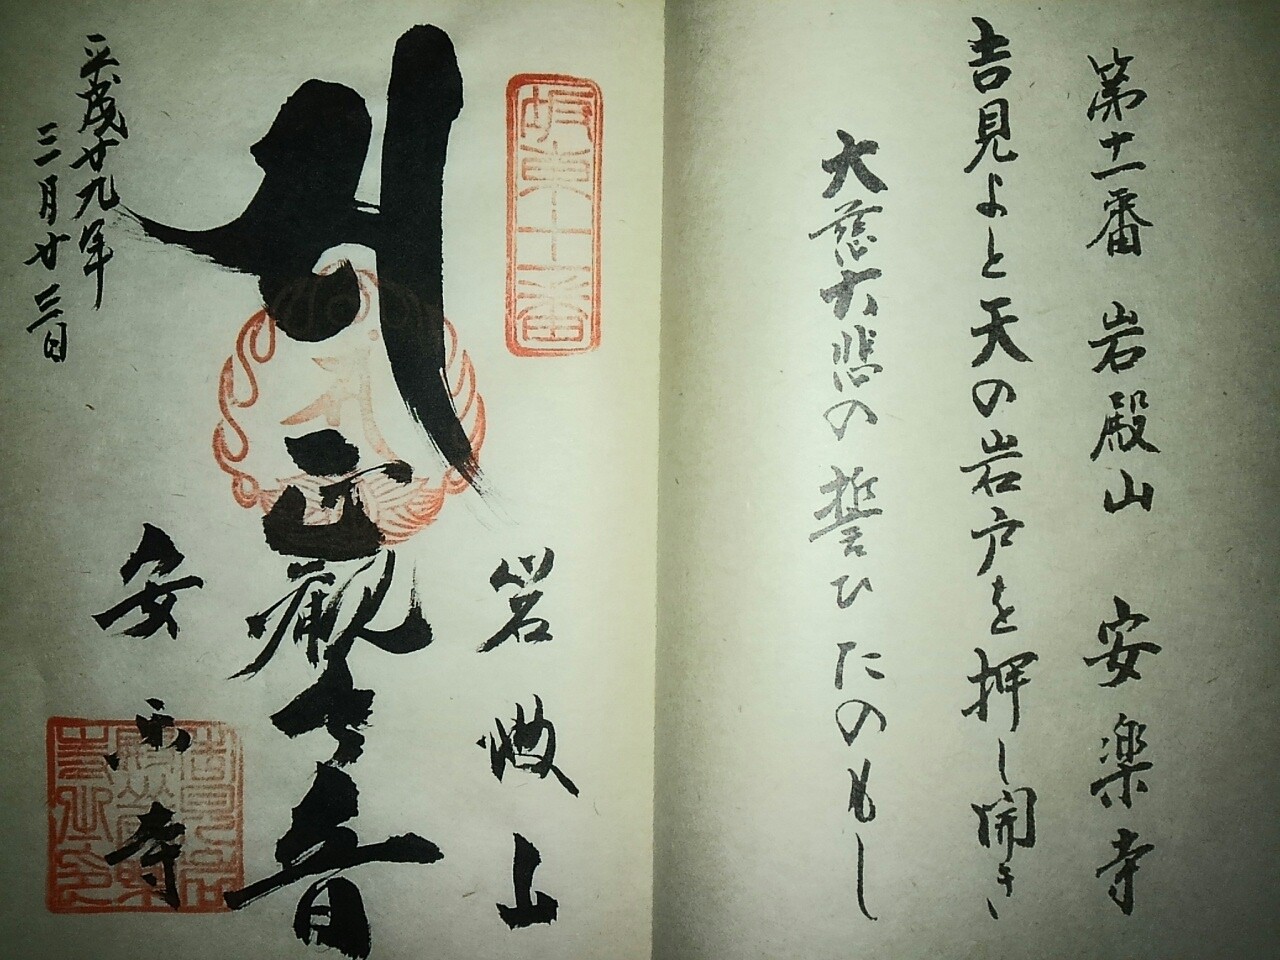 第十一番 岩殿山 安楽寺
吉見よと天の岩戸を押し開き
大慈大悲の誓ひたのもし
坂東十一番
岩殿山
正観世音
安楽寺
平成廿九年
三月廿三日